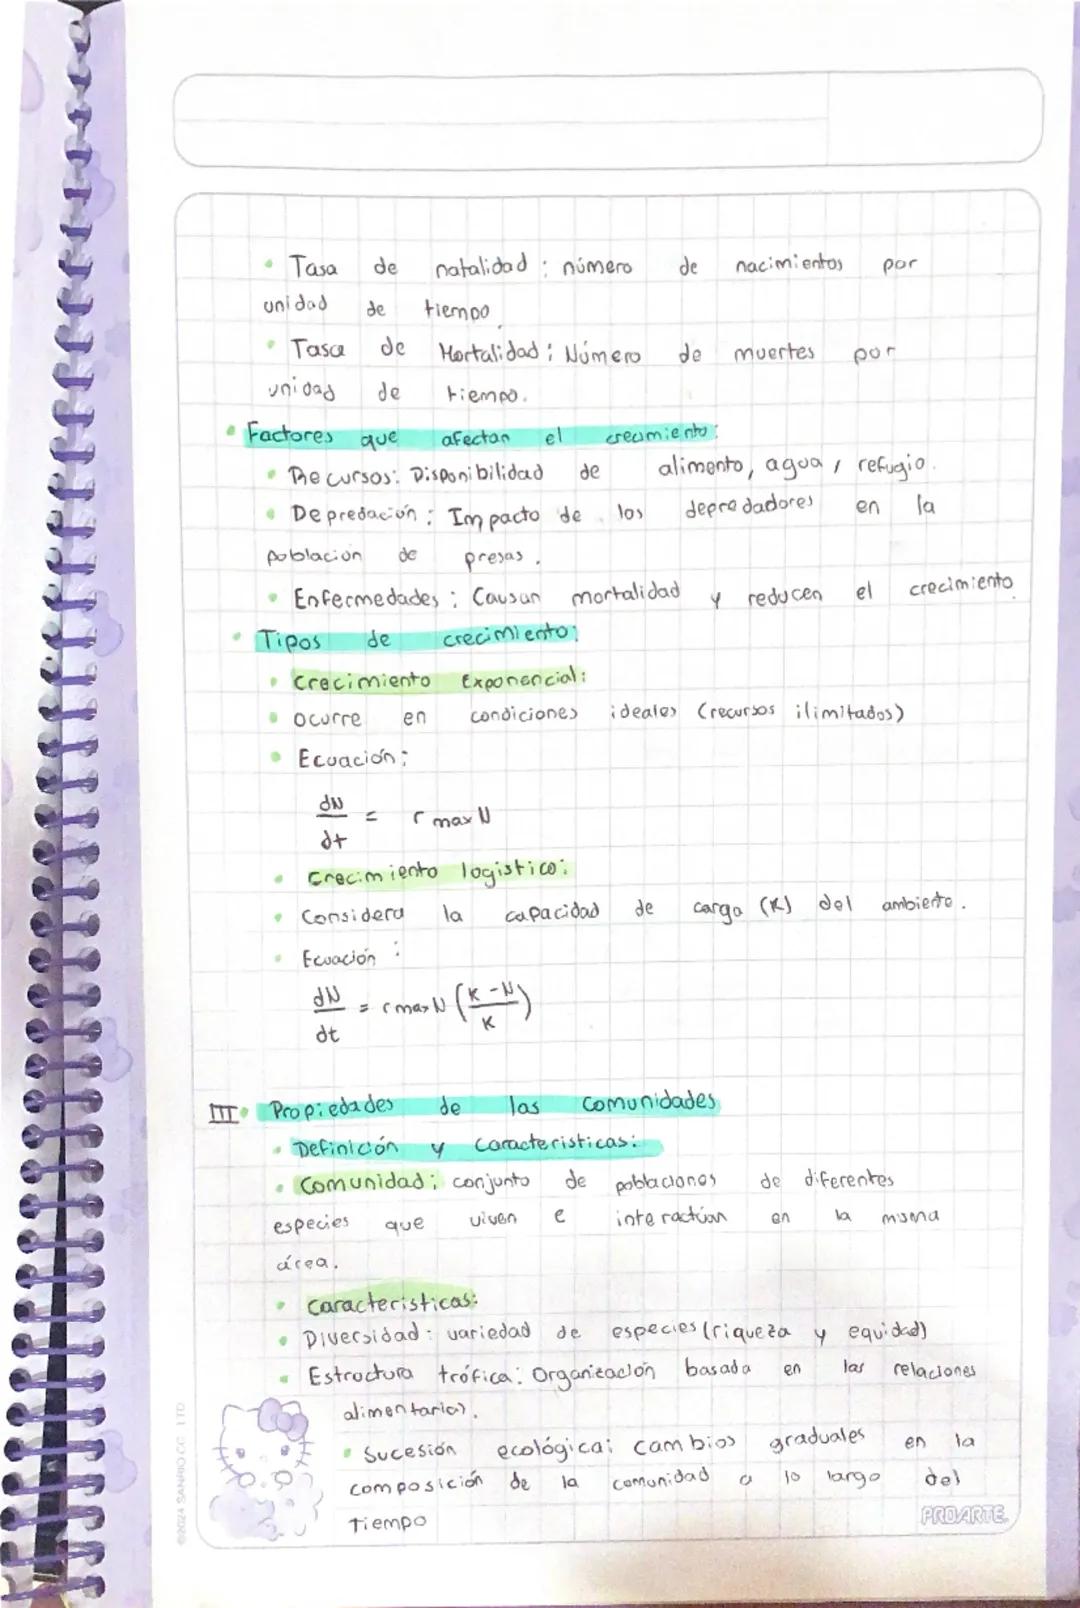 • Tasa de natalidad : número de nacimientos por
unidad de tiempo
• Tasa de Mortalidad : Número de muertes por
unidad de tiempo.
• Factores que afectan el crecimiento:
• Recursos: Disponibilidad de alimento, agua, refugio.
• Depredación : Impacto de los depredadores en la
población de presas.
• Enfermedades : Causan mortalidad y reducen el crecimiento
• Tipos de crecimiento:
• Crecimiento Exponencial:
• ocurre en condiciones ideales (recursos ilimitados)
• Ecuación:
dN/dt = r max N
• Crecimiento logistico:
• Considera la capacidad de carga (K) del ambiente.
• Ecuación :
dN/dt = r max N (K - N/K)
III• Propiedades de las Comunidades
• Definición y Caracteristicas:
• Comunidad: conjunto de poblaciones de diferentes
especies que viven e interactúan en la misma
área.
• Caracteristicas:
• Diversidad: variedad de especies (riqueza y equidad)
• Estructura trófica: Organización basada en las relaciones
alimentarias.
• Sucesión ecológica: cambios graduales en la
composición de la comunidad a lo largo del
Tiempo
PROARTE
©2024 SANRIO CO., LTD